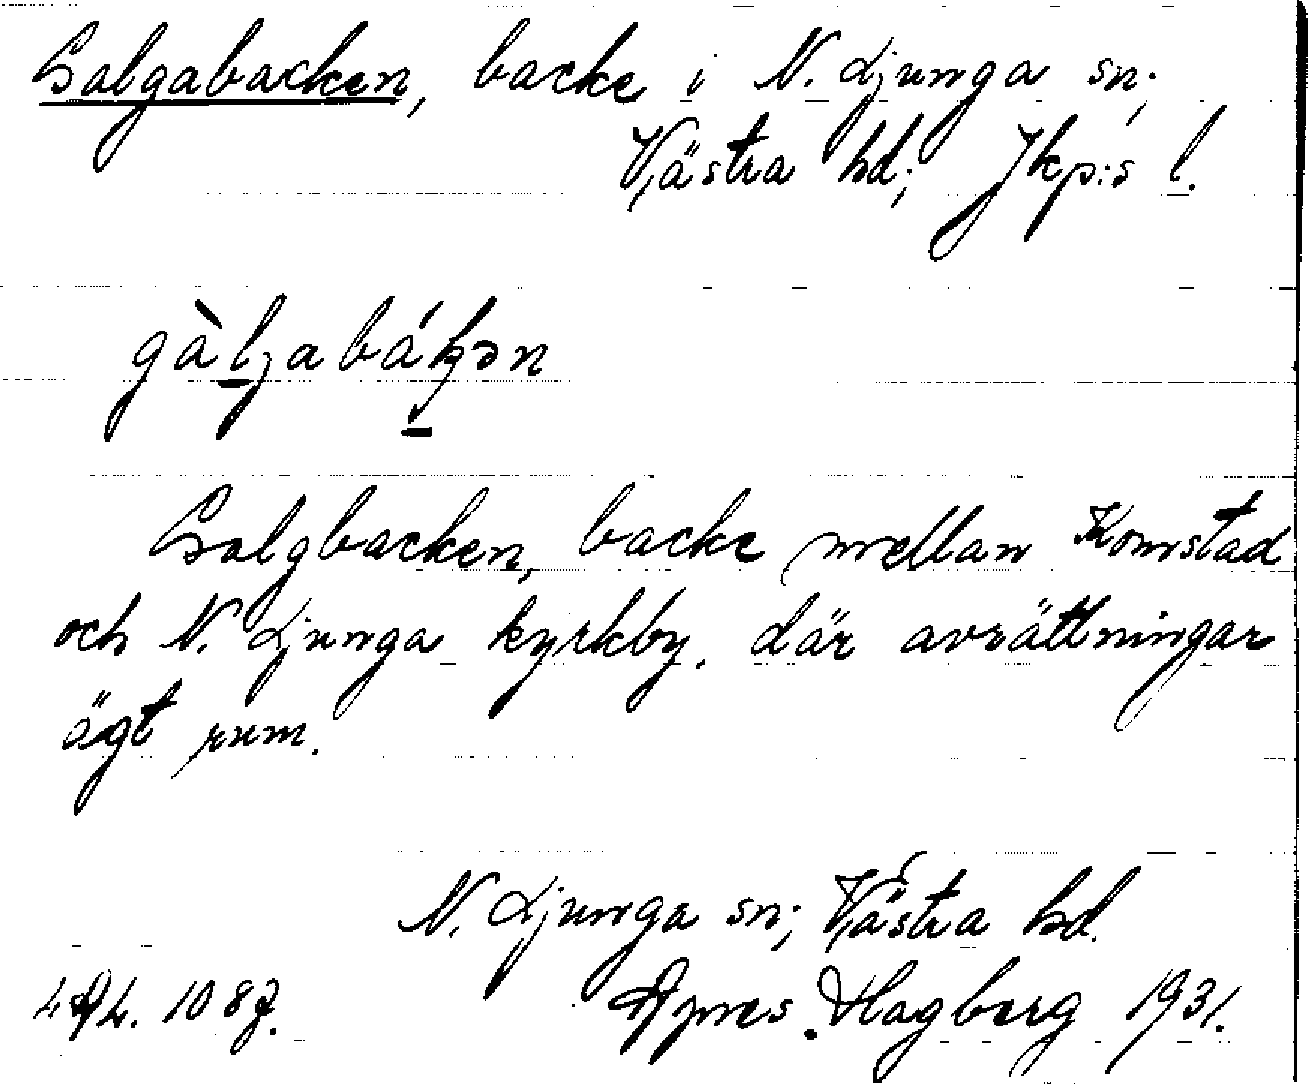 Galgabacken, backe i N. Ljunga sn;
Västra hd; Jkp:s l.
gàljabákən
Galgbacken, backe mellan Komstad
och N. Ljunga kyrkby, där avrättningar
ägt rum.
N. Ljunga sn; Västra hd.
Agnes Hagberg 1931.